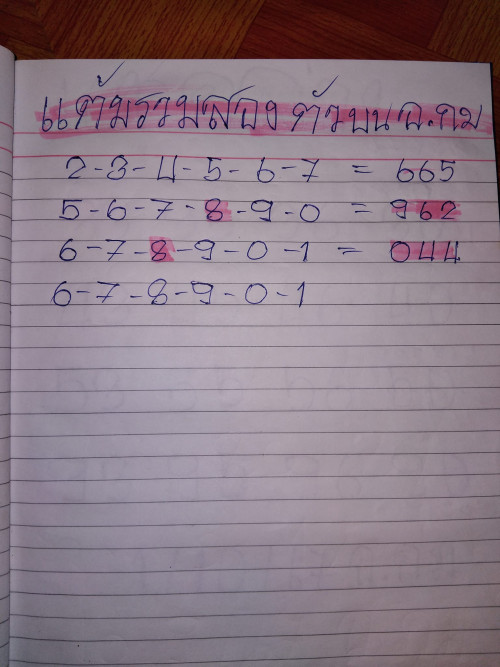 แต้มรวมสองตัวบน อ.กม
2-3-4-5-6-7 = 665
5-6-7-8-9-0 = 962
6-7-8-9-0-1 = 044
6-7-8-9-0-1